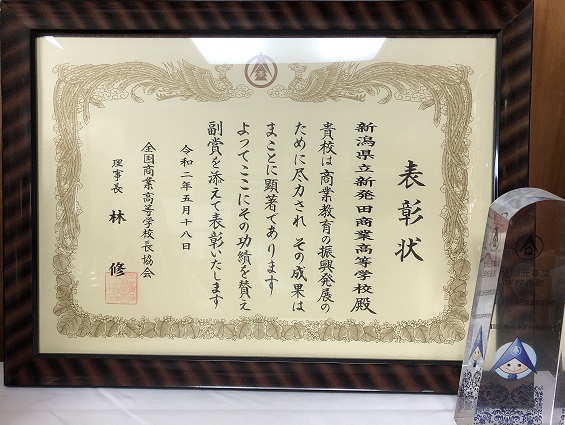 表彰状
新潟県立新発田商業高等学校殿
貴校は商業教育の振興発展の
ために尽力され その成果は
まことに顕著であります
よってここにその功績を賛え
副賞を添えて表彰いたします
令和二年五月十八日
全国商業高等学校長協会
理事長 林 修